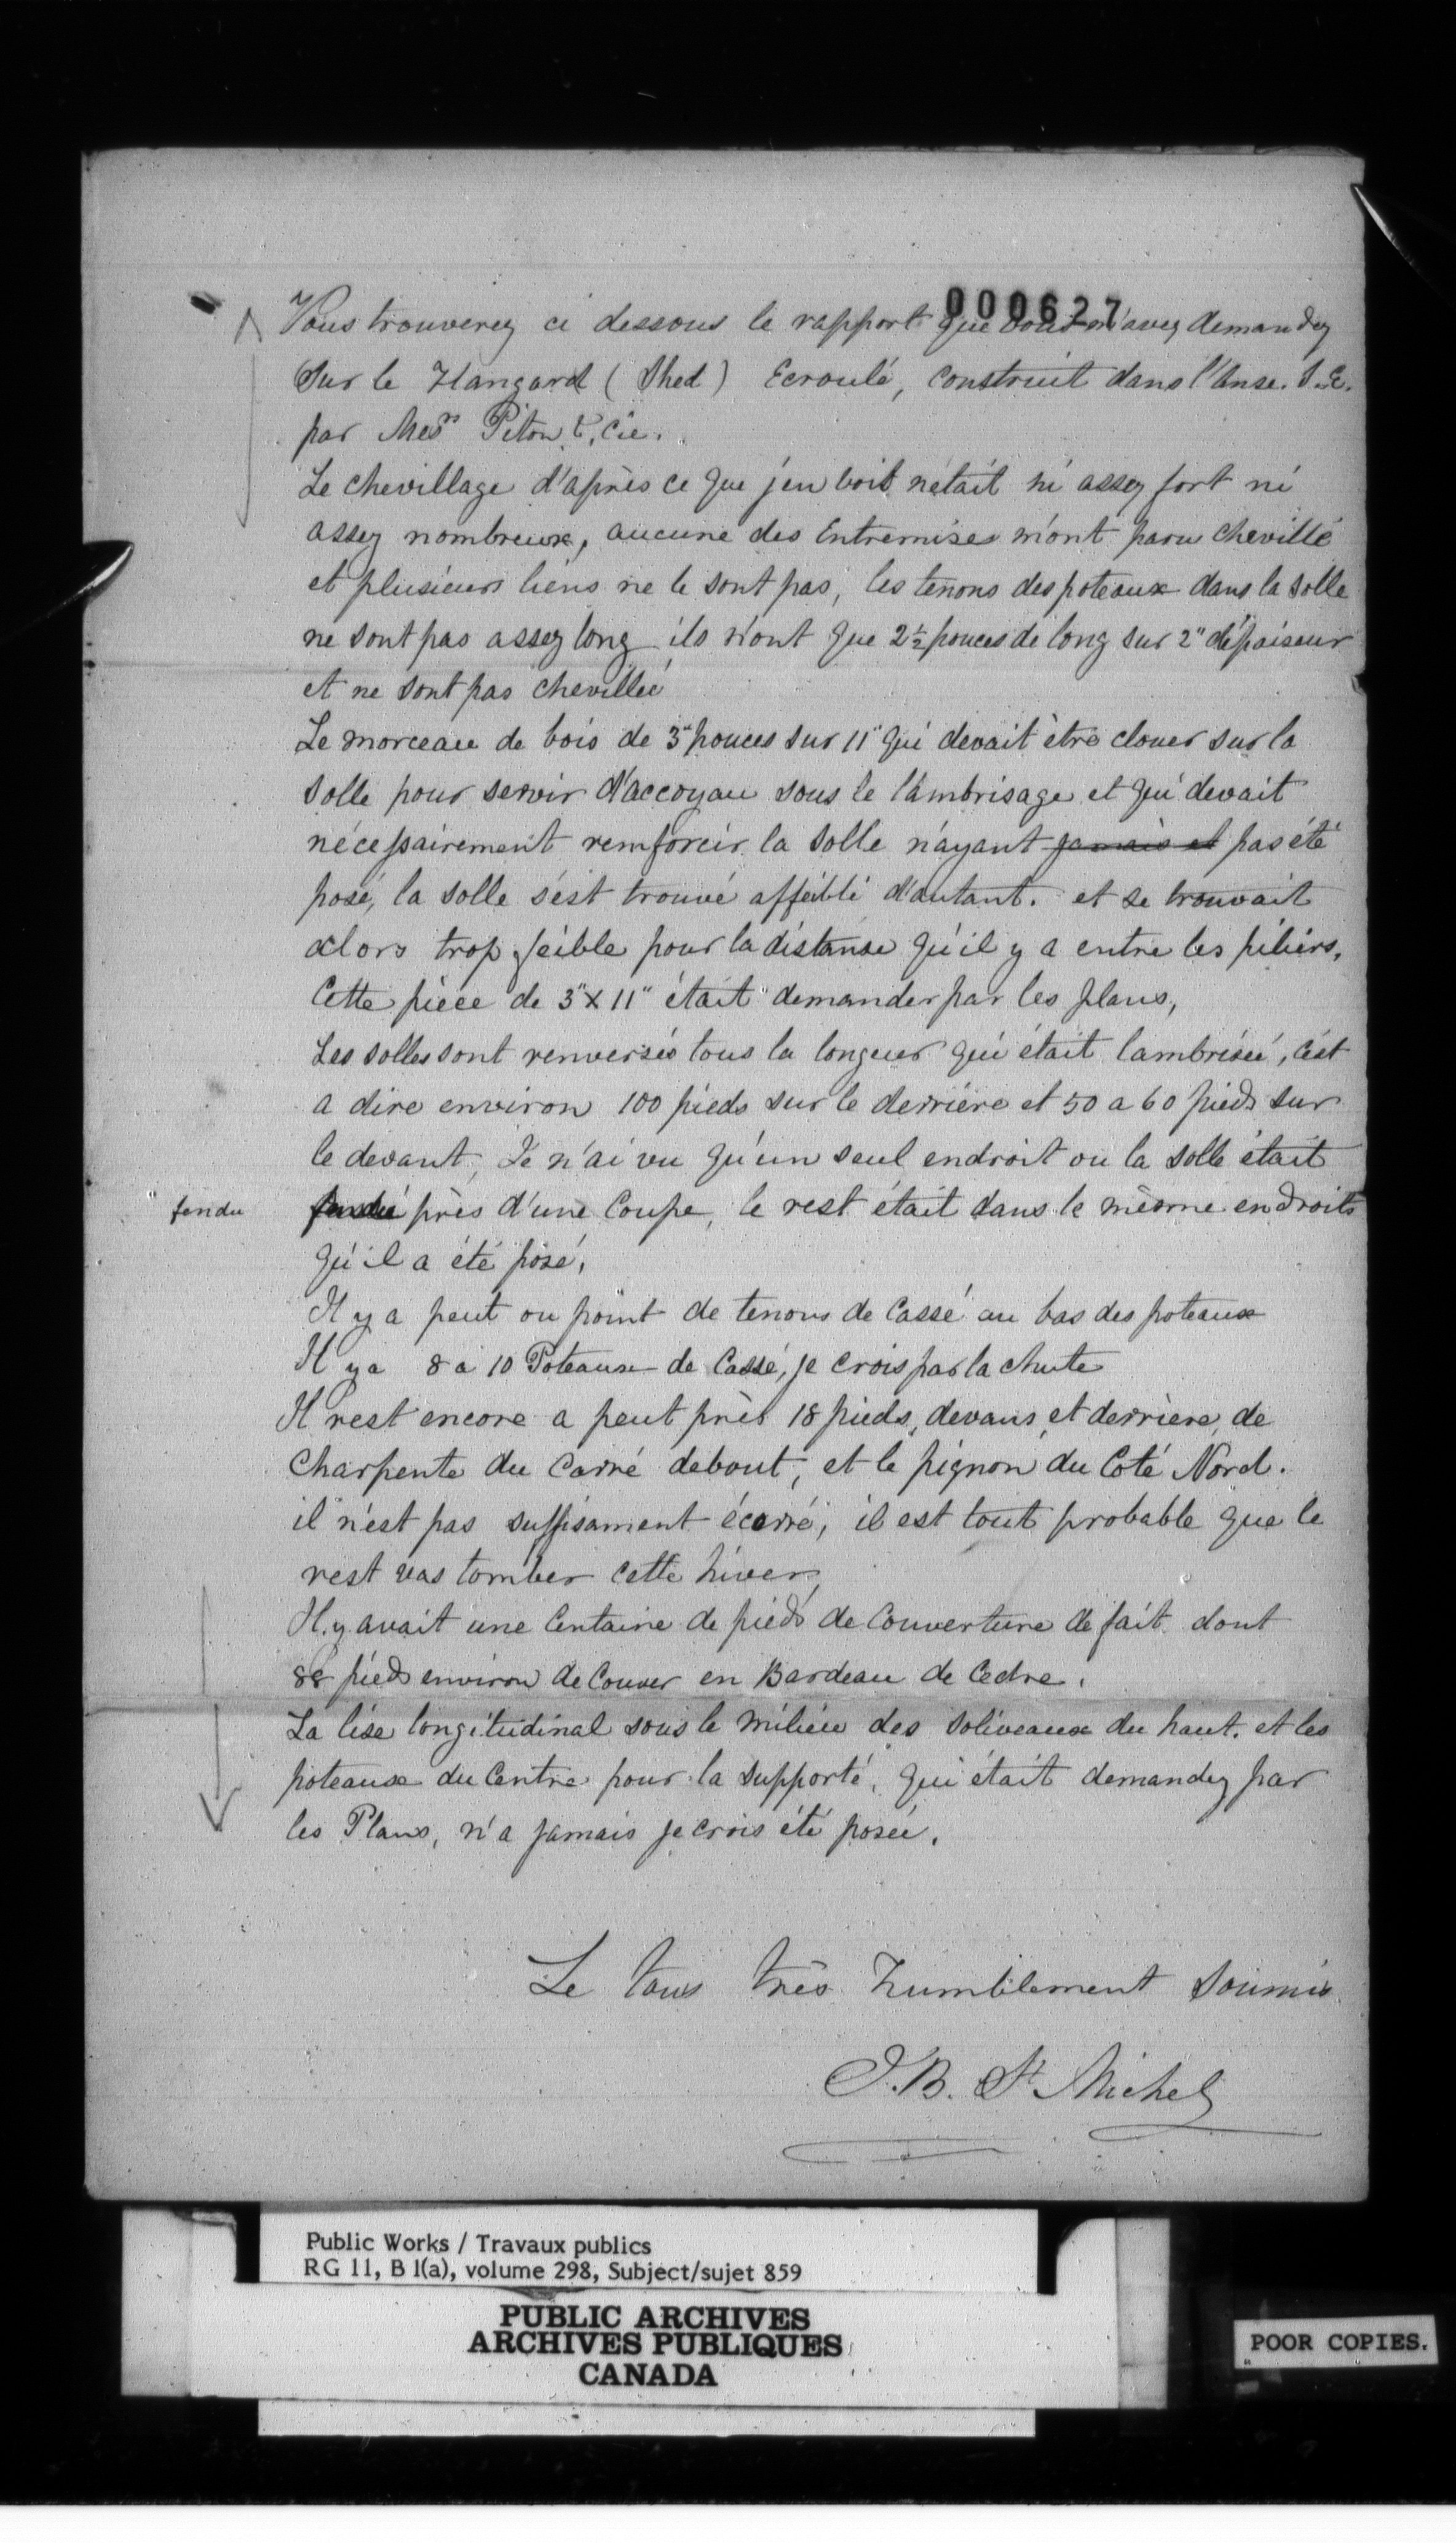 000627
Vous trouverez ci dessous le rapport que vous m'avez demandez
Sur le Hangard (Shed) Ecroulé, construit dans l'Anse. S.E.
par Mess Piton & Cie.
Le chevillage d'après ce que j'en voit n'était ni assez fort ni
assez nombreux, aucune des Entremises m'ont paru chevillé
et plusieurs liens ne le sont pas, les tenons des poteaux dans la solle
ne sont pas assez long ils n'ont que 2½ pouces de long sur 2" d'épaiseur
et ne sont pas chevillé
Le morceau de bois de 3" pouces sur 11" qui devait être clouer sur la
solle pour servir d'accoyau sous le lambrisage et qui devait
nécessairement renforcir la solle n'ayant jamais et pas été
posé, la solle s'est trouvé affeibli d'autant. et se trouvait
alors trop feible pour la distanse qu'il y a entre les piliers,
Cette piece de 3" x 11" était demander par les plans,
Les solles sont renversés tous la longueur qui était lambrisée, c'est
a dire environ 100 pieds sur le derrière et 50 a 60 pieds sur
le devant, Je n'ai vu qu'un seul endroit ou la solle était
fendu près d'une Coupe, le rest était dans le même endroits
qu'il a été posé,
Il y a peut ou point de tenons de Cassé au bas des poteaux
Il y a 8 a 10 Poteaux de Cassé, je crois par la chute
Il rest encore a peut près 18 pieds, devans et derrière, de
Charpente du Carré debout, et le pignon du Coté Nord.
il n'est pas suffisament écorré, il est tout probable que le
rest vas tomber cette hiver,
Il y avait une Centaine de pieds de Couverture de fait dont
88 pieds environ de Couver en Bardeau de Cedre.
La lise longitudinal sous le milieu des soliveaux du haut. et les
poteaux du Centre pour la supporté, qui était demandez par
les Plans, n'a jamais je crois été posée.
Le tous très humblement soumis
J.B. St Michel
Public Works / Travaux publics
RG 11, B 1(a), volume 298, Subject/sujet 859
PUBLIC ARCHIVES
ARCHIVES PUBLIQUES
CANADA
POOR COPIES.